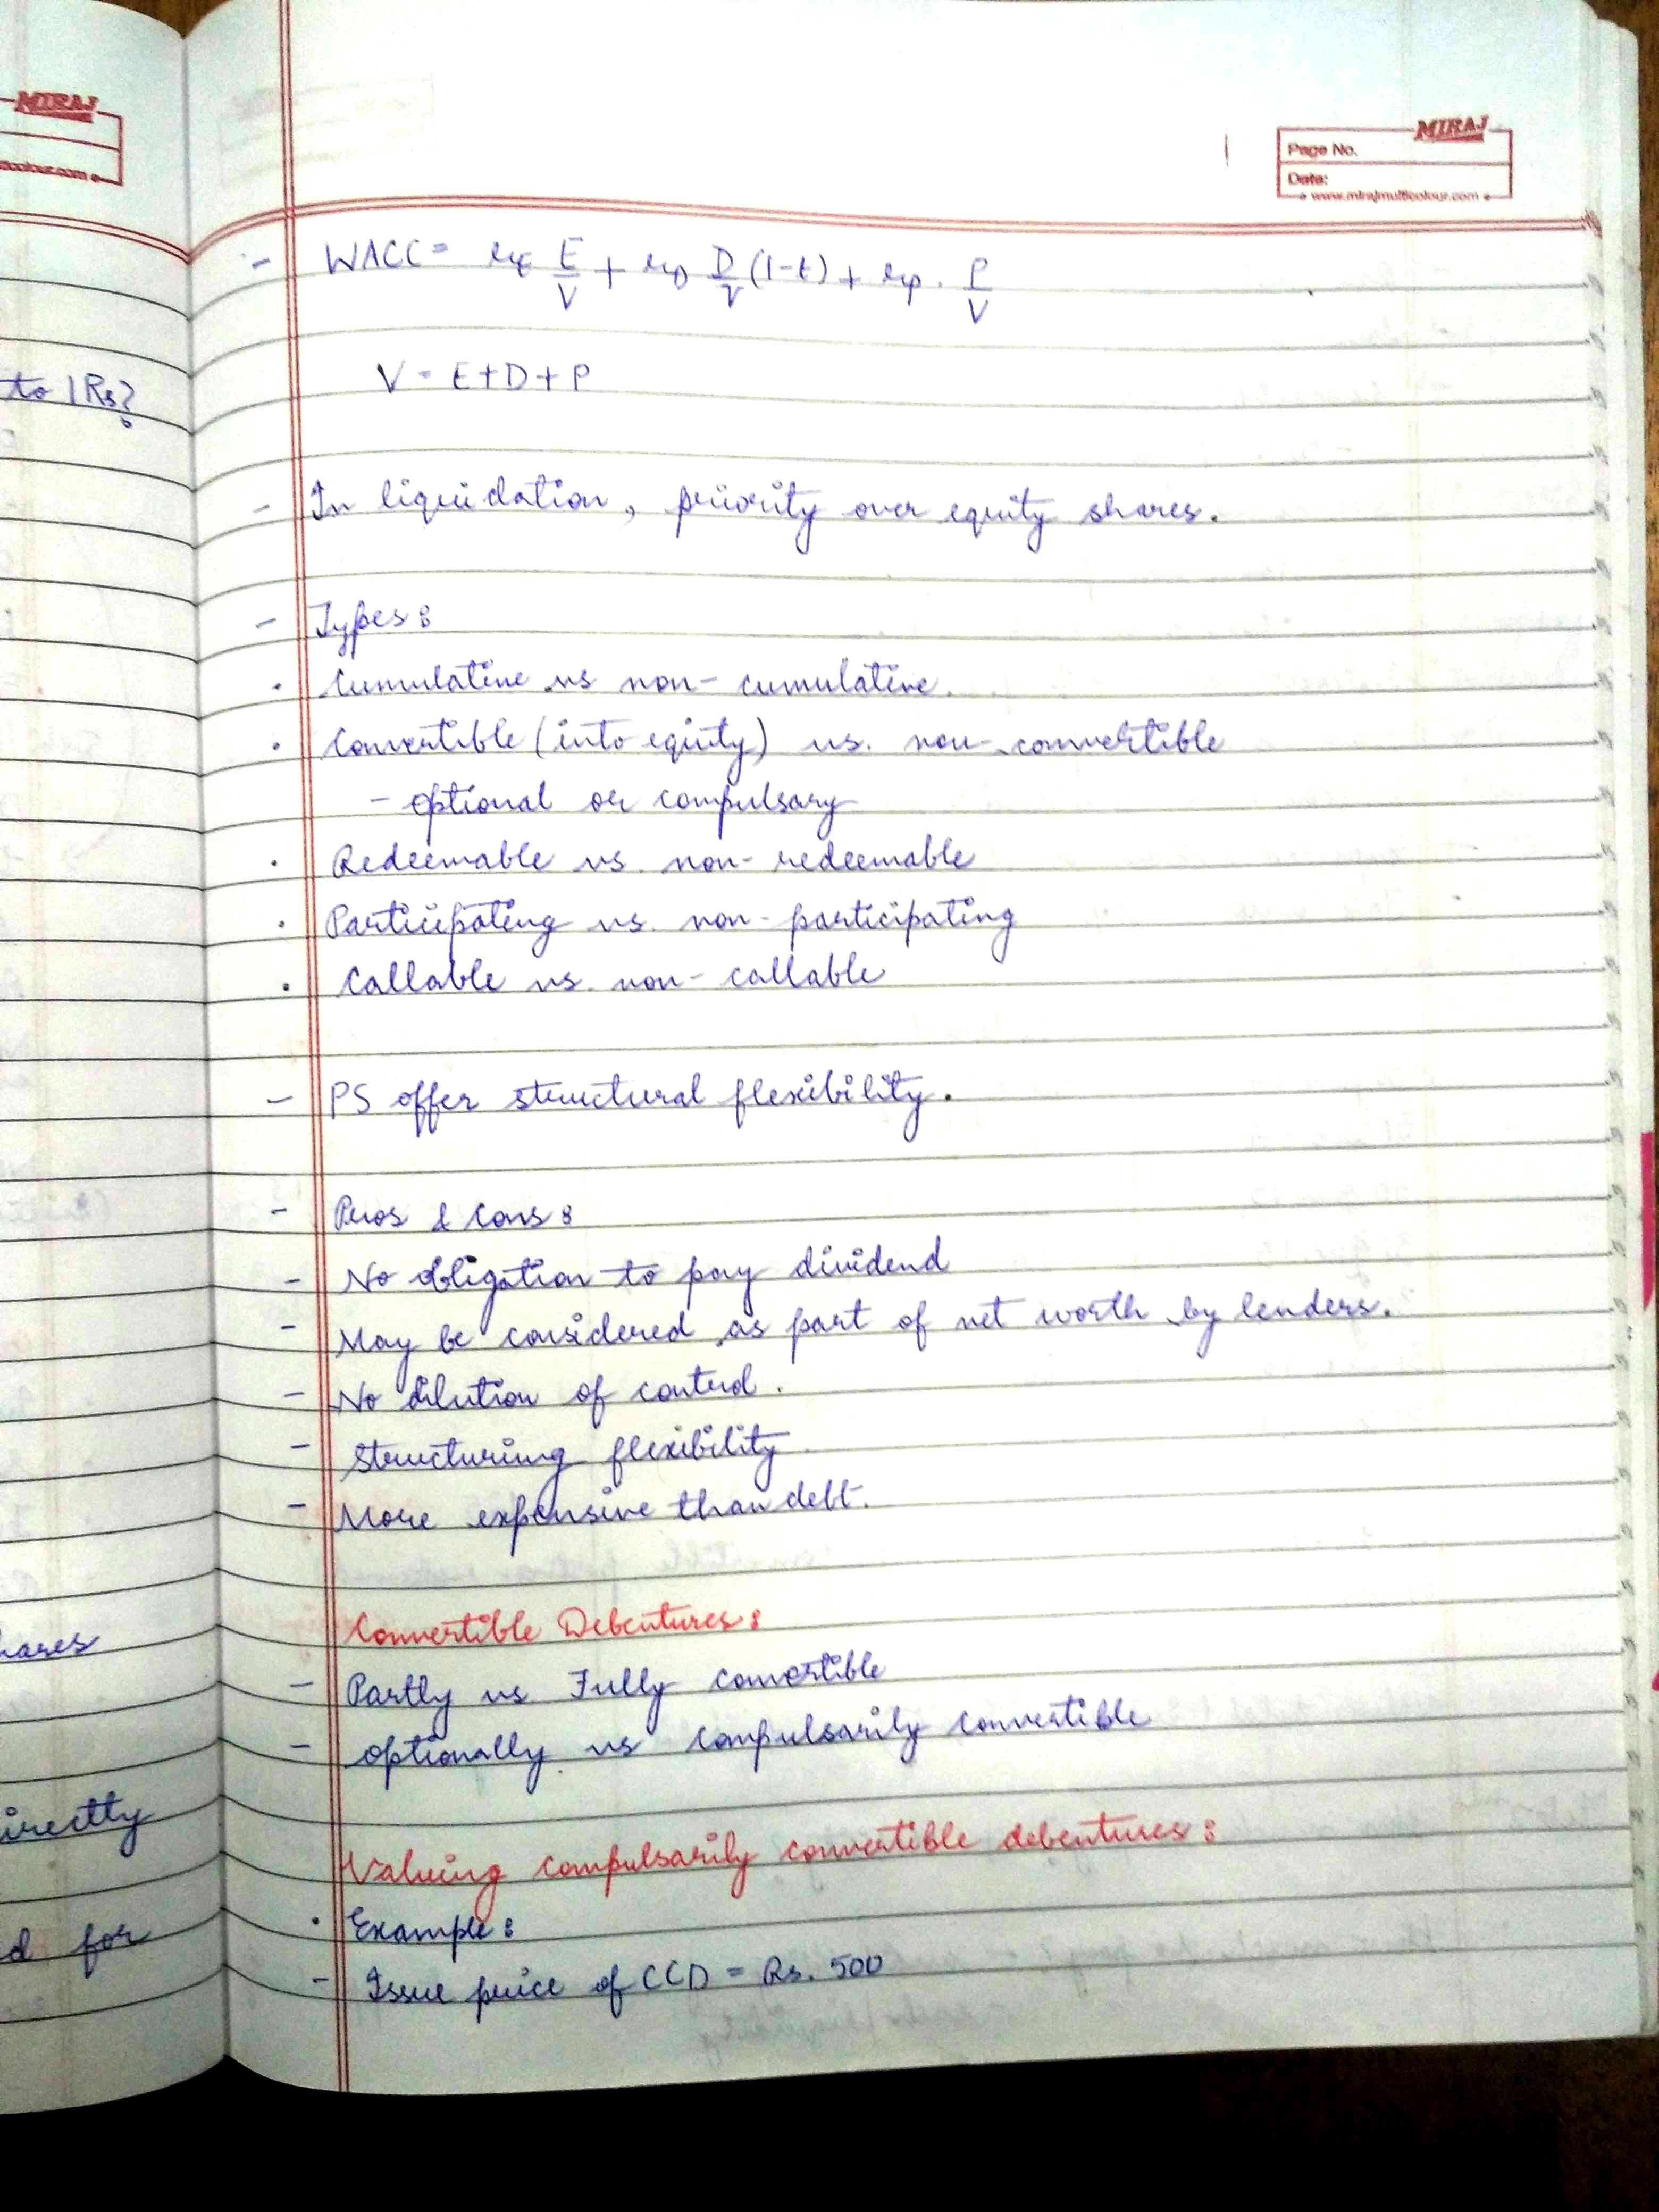 MIRAJ
ticolour.com
to 1Rs?
hares
irectly
d for
MIRAJ
Page No.
Date:
www.mirajmulticolour.com
- WACC = r_E E/V + r_D D/V (1-t) + r_P . P/V
V = E+D+P
- In liquidation, priority over equity shares.
- Types:
· Cumulative vs non-cumulative.
· Convertible (into equity) vs. non-convertible
- optional or compulsary
· Redeemable vs. non-redeemable
· Participating vs. non-participating
· Callable vs. non-callable
- PS offer structural flexibility.
- Pros & Cons:
- No obligation to pay dividend
- May be considered as part of net worth by lenders.
- No dilution of control.
- Structuring flexibility.
- More expensive than debt.
Convertible Debentures:
- Partly vs Fully convertible
- optionally vs compulsarily convertible
Valuing compulsarily convertible debentures:
· Example:
- Issue price of CCD = Rs. 500